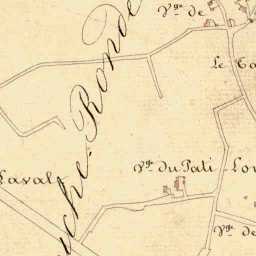 Vge de
Le Ca
uche. Ronde
Vge du Pati
Lou
Laval
Vge de